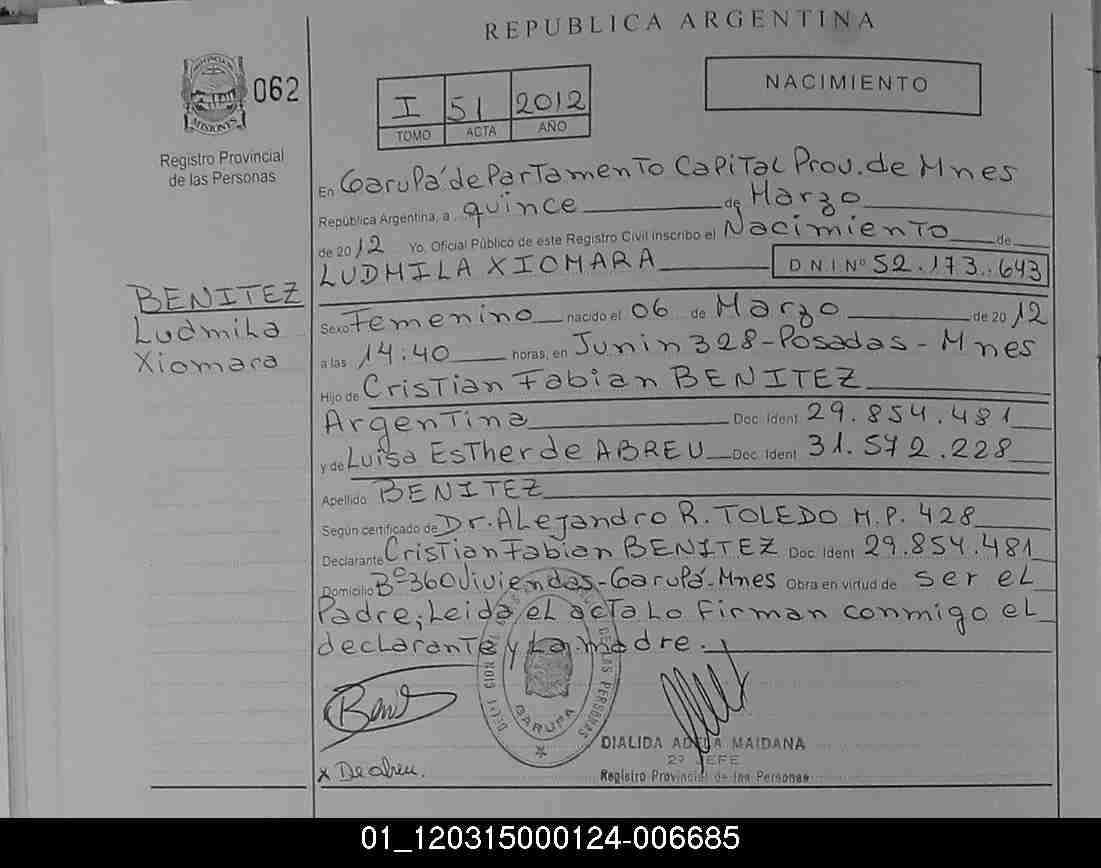 REPUBLICA ARGENTINA
PROVINCIA DE
MISIONES
062
Registro Provincial
de las Personas
I 51 2012
TOMO ACTA AÑO
NACIMIENTO
En Garupá departamento Capital Prov. de Mnes
República Argentina, a quince de Marzo
de 2012 Yo, Oficial Público de este Registro Civil inscribo el Nacimiento de
LUDMILA XIOMARA D N I Nº 52.173.643
BENITEZ
Ludmila
Xiomara
Sexo Femenino nacido el 06 de Marzo de 2012
a las 14:40 horas, en Junin 328-Posadas-Mnes
Hijo de Cristian Fabian BENITEZ
Argentina Doc. Ident 29.854.481
y de Luisa Esther de ABREU Doc. Ident 31.572.228
Apellido BENITEZ
Según certificado de Dr. Alejandro R. TOLEDO M.P. 428
Declarante Cristian Fabian BENITEZ Doc. Ident 29.854.481
Domicilio Bº 360 Viviendas-Garupá-Mnes Obra en virtud de ser el
Padre; Leida el acta lo firman conmigo el
declarante y la madre.
DELEGACION DE LAS PERSONAS
GARUPA
Beni
x De abreu.
DIALIDA ADELA MAIDANA
2º JEFE
Registro Provincial de las Personas
01_120315000124-006685